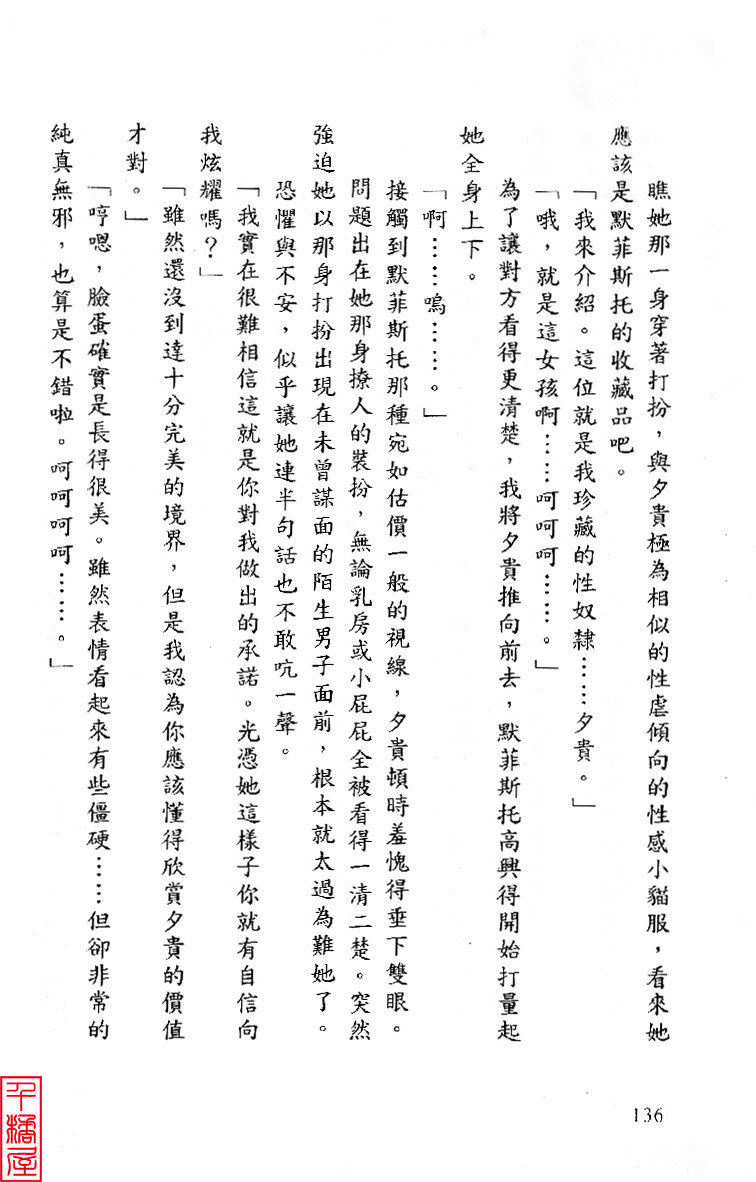 瞧她那一身穿著打扮，與夕貴極為相似的性虐傾向的性感小貓服，看來她
應該是默菲斯托的收藏品吧。
「我來介紹。這位就是我珍藏的性奴隸……夕貴。」
「哦，就是這女孩啊……呵呵呵……。」
為了讓對方看得更清楚，我將夕貴推向前去，默菲斯托高興得開始打量起
她全身上下。
「啊……嗚……。」
接觸到默菲斯托那種宛如估價一般的視線，夕貴頓時羞愧得垂下雙眼。
問題出在她那身撩人的裝扮，無論乳房或小屁屁全被看得一清二楚。突然
強迫她以那身打扮出現在未曾謀面的陌生男子面前，根本就太過為難她了。
恐懼與不安，似乎讓她連半句話也不敢吭一聲。
「我實在很難相信這就是你對我做出的承諾。光憑她這樣子你就有自信向
我炫耀嗎？」
「雖然還沒到達十分完美的境界，但是我認為你應該懂得欣賞夕貴的價值
才對。」
「哼嗯，臉蛋確實是長得很美。雖然表情看起來有些僵硬……但卻非常的
純真無邪，也算是不錯啦。呵呵呵呵……。」
136